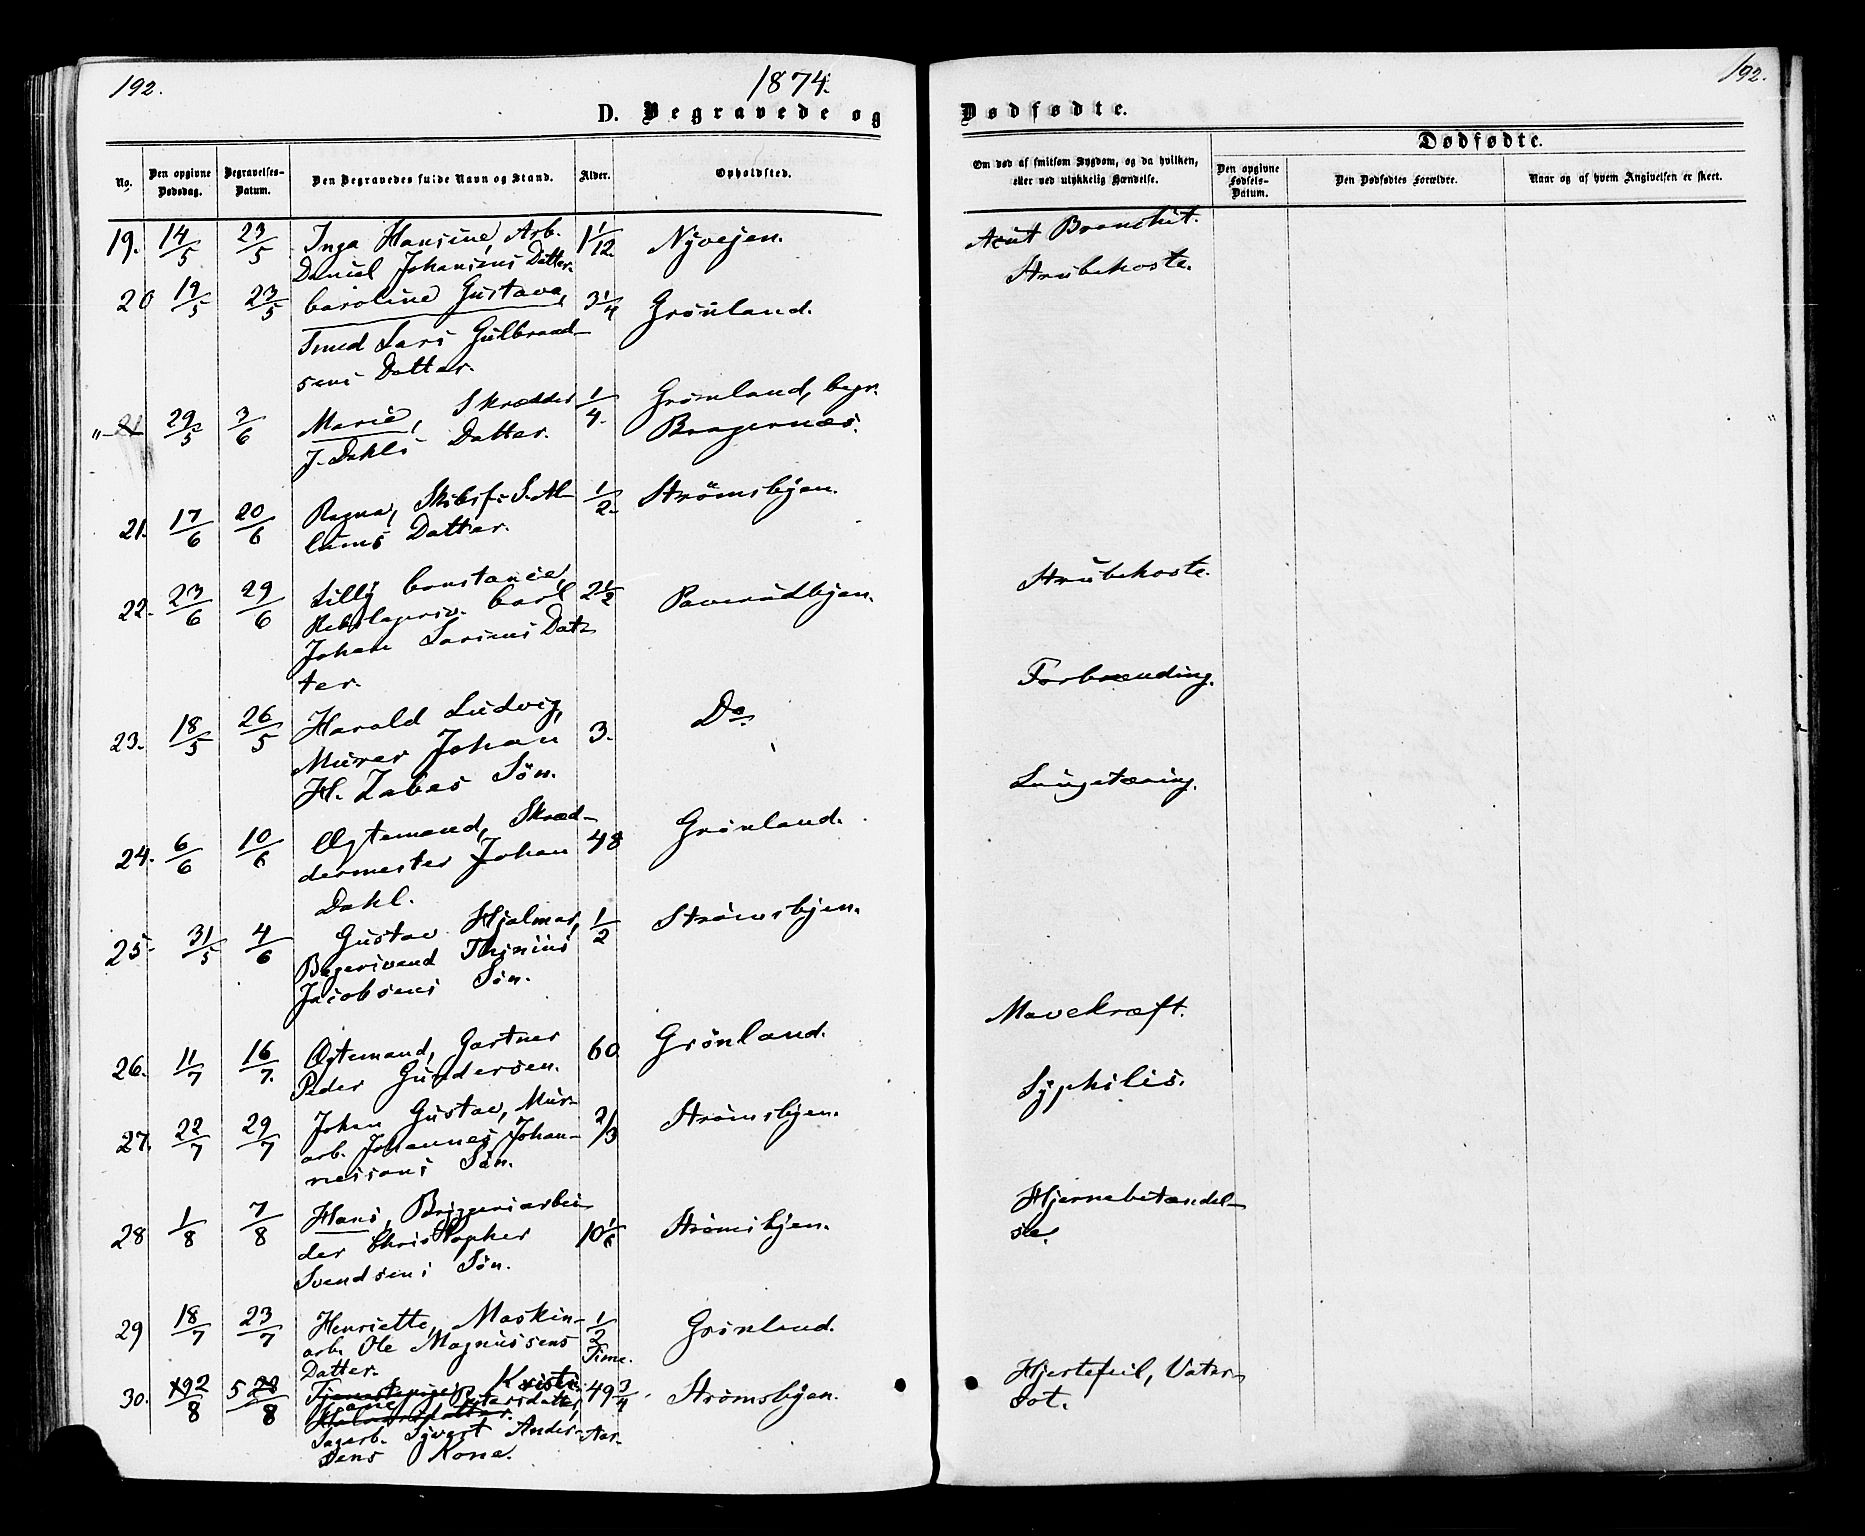 192.
1874.
192.
D. Begravede og
Dødfødte.
No.
Den opgivne Dødsdag.
Begravelses-Datum.
Den Begravedes fulde Navn og Stand.
Alder.
Opholdsted.
Om død af smitsom Sygdom, og da hvilken,
eller ved ulykkelig Hændelse.
Dødfødte.
Den opgivne Fødsels-Datum.
Den Dødfødtes Forældre.
Naar og af hvem Angivelsen er skeet.
19. 14/5 23/5 Inga Hansine, Arb. 1 1/12 Nyvejen. Acut Bronchit.
Daniel Johansens Datter.
20 19/5 23/5 Caroline Gustava, 3 1/4 Grønland. Strubehoste.
Smed Lars Gulbrand-
sens Datter.
" 21 29/5 3/6 Marie, Skrædder 1/4. Grønland, begr.
J. Dahls Datter. Bragernæs.
21. 17/6 20/6 Ragna, Skibsf. 1/2. Strømsbyen.
Datter.
22. 23/6 29/6 Lilly Constance, 2 1/2 Paverudbyen. Strubehoste.
Carl
Johan Larsens Dat-
ter.
23. 18/5 26/5 Harald Ludvig, 3. Do. Forbrænding.
Murer Johan
H. Zabes Søn.
24. 6/6 10/6 Ægtemand, Skræd- 48 Grønland. Lungetæring.
dermester Johan
Dahl.
25. 31/5 4/6 Gustav Hjalmar, 1/2 Strømsbyen.
Bagersvend
Jacobsens Søn.
26. 11/7 16/7. Ægtemand, Gartner 60 Grønland. Mavekræft.
Peder Gundersen.
27. 22/7 29/7 Johan Gustav, Mur- 2/3 Strømsbyen. Syphilis.
arb. Johannes Johan-
nessens Søn.
28 1/8 7/8 Hans, Bryggeriarbei- 10 1/6 Strømsbyen. Hjernebetændel-
der Christopher se.
Svendsens Søn.
29 18/7 23/7 Henriette, Maskin- 1/2 Time. Grønland.
arb. Ole Magnussens
Datter.
30. 2/8 5/8 Tjenestepige Kristi- 49 3/4 Aar. Strømsbyen. Hjertefeil, Vater-
ane Petersdatter, sot.
Halvorsdatter.
Sagarb. Syvert Ander-
sens Kone.